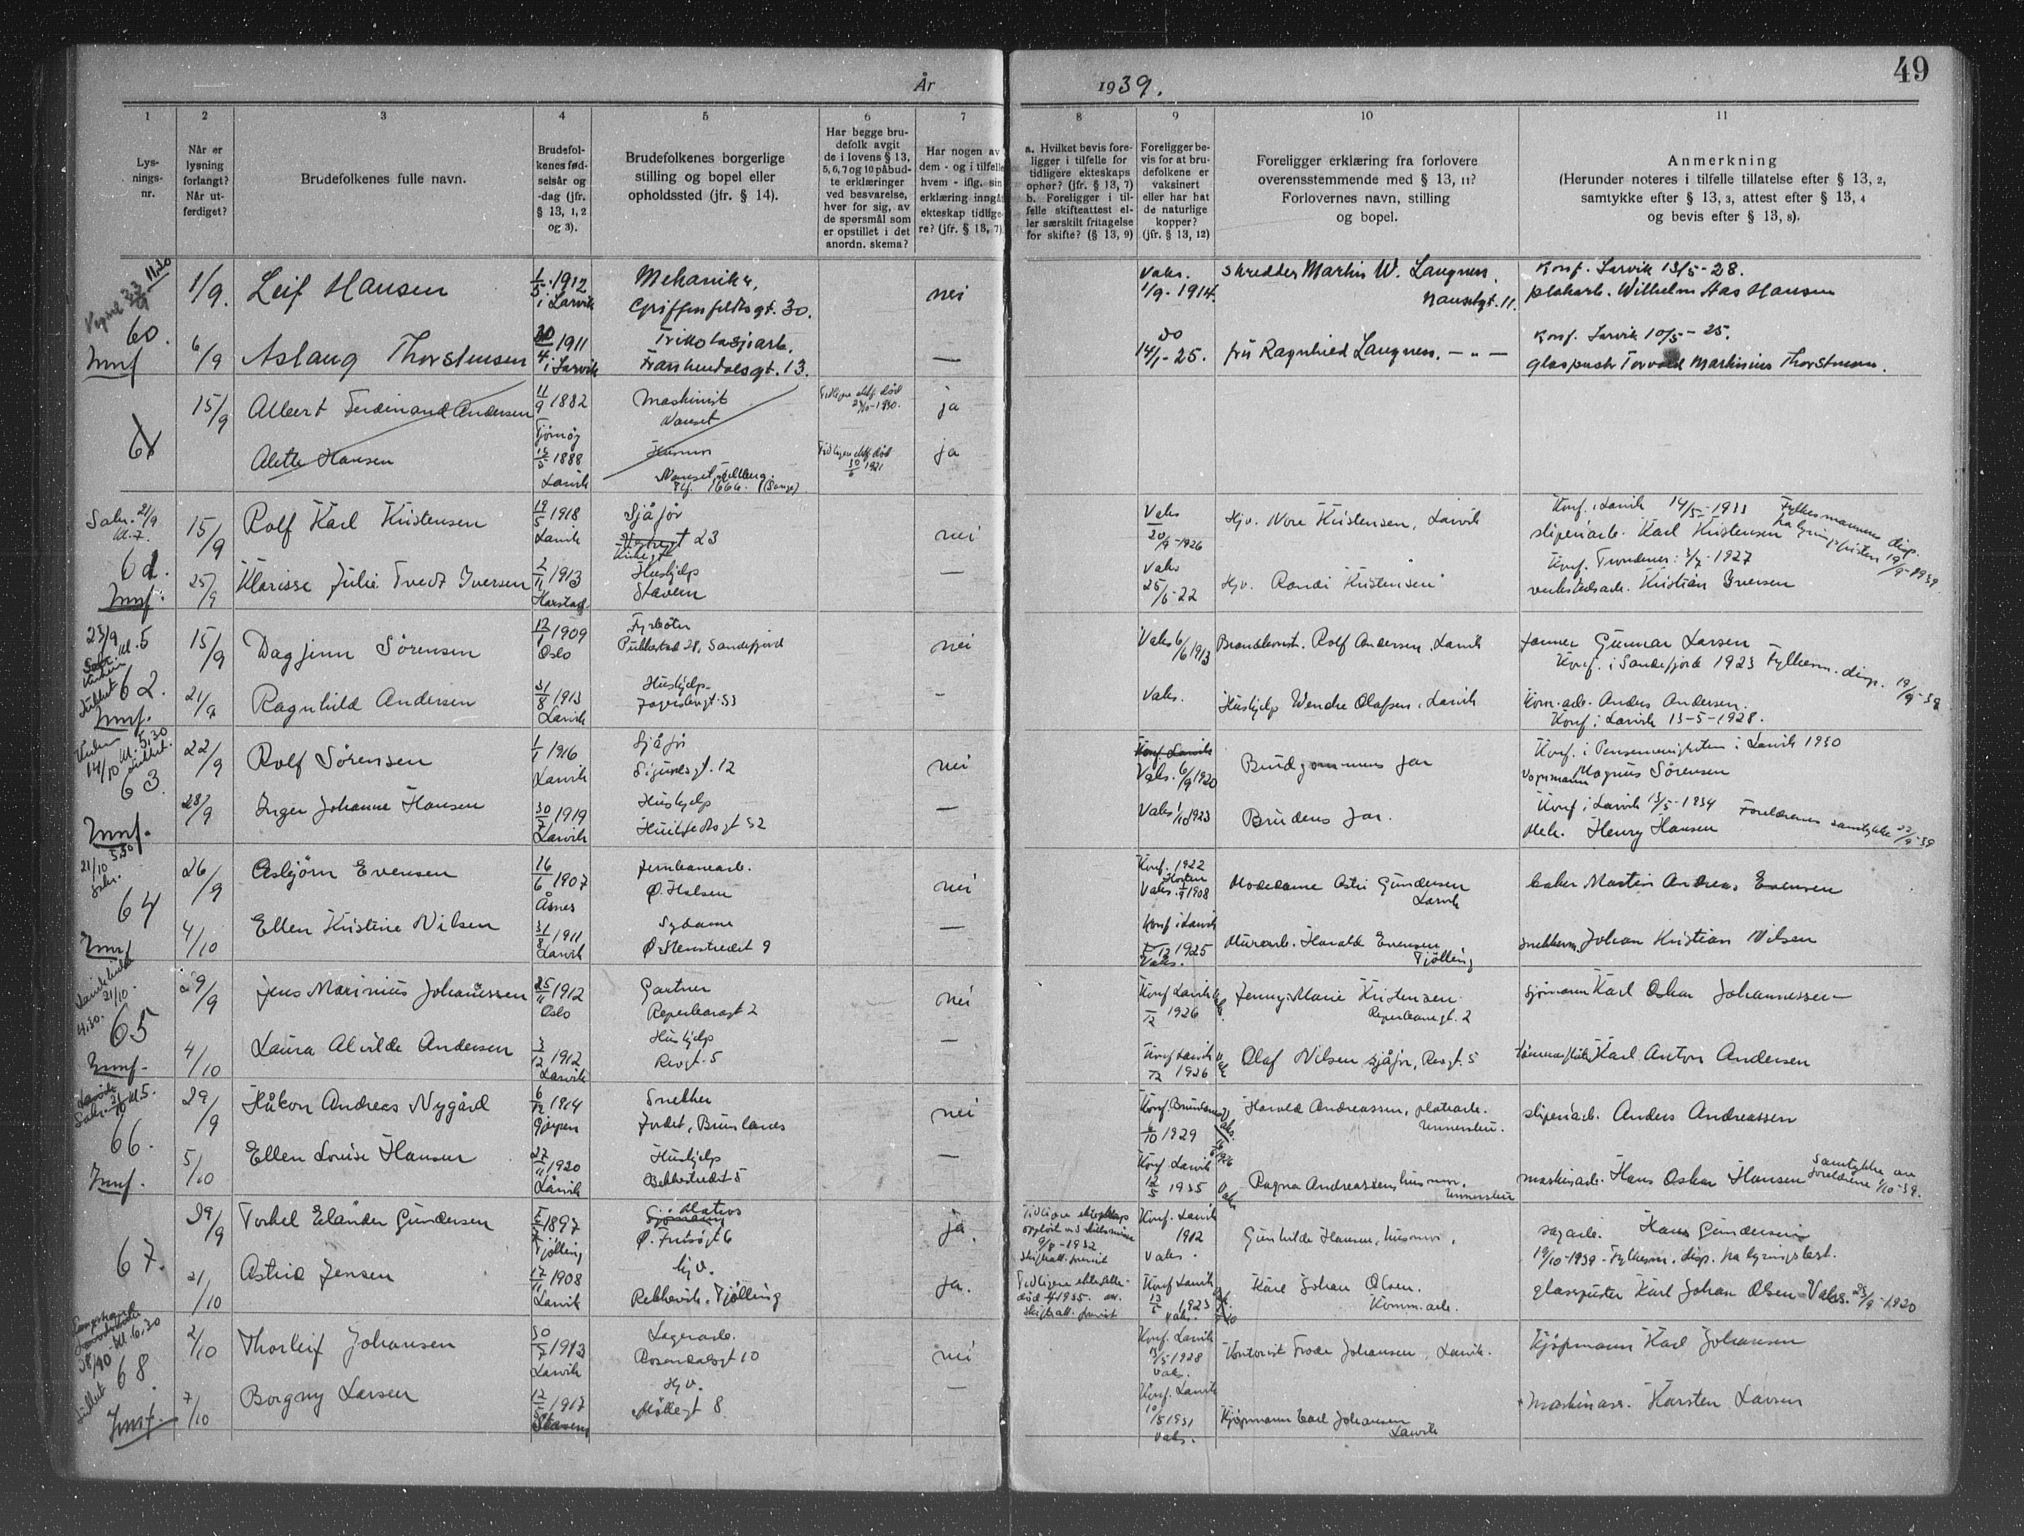 49
År 1939.
1 2 3 4 5 6 7 8 9 10 11
Lysningsnr.
Når er lysning forlangt? Når utferdiget?
Brudefolkenes fulle navn.
Brudefolkenes fødselsår og -dag (jfr. § 13, 1, 2 og 3).
Brudefolkenes borgerlige stilling og bopel eller opholdssted (jfr. § 14).
Har begge brudefolk avgit de i lovens § 13, 5, 6, 7 og 10 påbudte erklæringer ved besvarelse, hver for sig, av de spørsmål som er opstillet i det anordn. skema?
Har nogen av dem - og i tilfelle hvem - iflg. sin erklæring inngåt ekteskap tidligere? (jfr. § 13, 7)
a. Hvilket bevis foreligger i tilfelle for tidligere ekteskaps ophør? (jfr. § 13, 7) b. Foreligger i tilfelle skifteattest eller særskilt fritagelse for skifte? (§ 13, 9)
Foreligger bevis for at brudefolkene er vaksinert eller har hat de naturlige kopper? (jfr. § 13, 12)
Foreligger erklæring fra forlovere overensstemmende med § 13, 11? Forlovernes navn, stilling og bopel.
Anmerkning (Herunder noteres i tilfelle tillatelse efter § 13, 2, samtykke efter § 13, 3, attest efter § 13, 4 og bevis efter § 13, 8).
11.30
60. 1/9. Leif Hansen 1/5 1912 i Larvik Mekaniker, Griffenfeldtsgt. 30. nei Vaks. 1/9-1914 skredder Martin W. Langnes, Nansetgt. 11. Konf. Larvik 13/5-28. platearb. Wilhelm Aas Hansen
Innf 6/9 Aslaug Thorstensen 30/4 1911 i Larvik Trikotasjearb. Frankendalsgt. 13. — do 14/1-25. fru Ragnhild Langnes. — " — Konf. Larvik 10/5-25. glaspuster Torvald Martinius Thorstensen.
61 15/9 Albert Ferdinand Andersen 11/9 1882 Tjømøy Maskinist Nanset Tidligere ektef. død 1930. ja
Alette Hansen 1888 Larvik Husmor Nanset, Tlf. 1666. Tidligere ektef. død 1921 ja
Sakr. 21/9 kl. 7. 61. 15/9 Rolf Karl Kristensen 19/5 1918 Larvik Sjåfør 23 nei Vaks 20/9-1926 Hjv. Nore Kristensen, Larvik Konf. i Larvik 14/5-1933 sliperiarb. Karl Kristensen Fylkesmannens disp. fra lysningsfristen 19/9-1939.
Innf. 25/9 Klarisse Julie Tvedt Iversen 2/11 1913 Harstad Hushjelp Stavern — Vaks 25/5-22 Hjv. Randi Kristensen Konf. Trondenes: 3/7-1927 verkstedsarb. Kristian Iversen
23/9 kl. 5 62. 15/9 Dagfinn Sørensen 12/1 1909 Oslo Fyrbøter Pukkestad 28, Sandefjord nei Vaks 6/6 1913 Brandkonst. Rolf Andersen, Larvik former Gunnar Larsen Konf. i Sandefjord 1923 Fylkesm. disp. 19/9-39
Innf. 21/9 Ragnhild Andersen 31/8 1913 Larvik Hushjelp Jegersborggt. 53 - Vaks. Hushjelp Wenche Olafsen, Larvik Kom.arb. Anders Andersen. Konf. i Larvik 13-5-1928.
14/10 kl. 5.30 63. 22/9 Rolf Sørensen 1/1 1916 Larvik Sjåfør Sigurdsgt. 12 nei Konf. Larvik Vaks. 6/9 1920 Brudgommens far Konf. i Pinsemenigheten i Larvik 1930 Vognmann Magnus Sørensen
Innf. 28/9 Inger Johanne Hansen 30/7 1919 Larvik Hushjelp Huitfeldtsgt 52 — Vaks 1/10 1923 Brudens far. Konf. i Larvik 13/5-1934 Mek. Henry Hansen Foreldrenes samtykke 22/9-39
21/10 5.30 Sakr. 64 26/9 Asbjørn Evensen 16/6 1907 Åsnes Jernbanearb. Ø. Halsen nei Konf. 1922 Horten Vaks. 1908 Motedame Astri Gundersen Larvik baker Martin Andreas Evensen
Innf 4/10 Ellen Kristine Nilsen 31/8 1911 Larvik Sydame Ø. Stenstredet 9 — Konf i Larvik 1925 Vaks. Murarb. Harald Evensen Tjølling snekkerm. Johan Kristian Nilsen
21/10. 4.30. 65 29/9 Jens Marinius Johannessen 25/11 1912 Oslo Gartner Reperbanegt 2 nei Konf Larvik /12 1926 Jenny Marie Kristensen. Reperbanegt. 2 Sjømann Karl Oskar Johannessen
Innf. 4/10 Laura Alvilde Andersen 3/12 1912 Larvik Hushjelp Revgt. 5 — Konf Larvik /12 1926 Olaf Nilsen sjåfør, Revgt. 5 Karl Anton Andersen
Larvik Sakr. kl 5. 66. 29/9 Håkon Andreas Nygård 6/12 1914 Gjerpen Snekker Jordet, Brunlanes nei Konf. Brunlanes /10 1929 Harald Andreassen, platearb. Unnersbu. sliperiarb. Anders Andreassen
Innf. 5/10 Ellen Lovise Hansen 27/11 1920 Larvik Hushjelp Bekkestredet 5 — Konf. Larvik 12/5 1935 Vaks Ragna Andreassen husmor. Unnersbu maskinarb. Hans Oskar Hansen Samtykke av foreldrene /10-39.
67. 29/9 Torkel Elander Gundersen 1897 Tjølling Sjømann Matros Ø. Fritsøgt 6 ja. Tidligere ekteskap oppløst ved 9/8-1932 skifteatt. Konf. Larvik 1912 Vaks. Gunhilde Hansen, husmor. sagarb. Hans Gundersen 19/10-1939 - Fylkesm. disp. fra lysningsbest.
21/10 Astrid Jensen 17/11 1908 Larvik Hjv. Rekkevik, Tjølling ja. Tidligere ektefelle død 1935 skifteatt. Konf Larvik 13/5 1923 Vaks. Karl Johan Olsen. Komm.arb. glasspuster Karl Johan Olsen Vaks. 23/9-1920
28/10 kl. 6.30 68. 2/10 Thorleif Johansen 30/7 1913 Larvik Lagerarb. Rosendalsgt 10 nei Konf. Larvik 13/5 1928 Vaks. Kontorist Frode Johansen, Larvik. Kjøpmann Karl Johansen
Innf. 7/10 Borgny Larsen 12/5 1917 Stavern Hjv. Møllegt 8 — Konf. Larvik 10/5 1931 Vaks. Kjøpmann Carl Johansen Larvik Maskinarb. Karsten Larsen